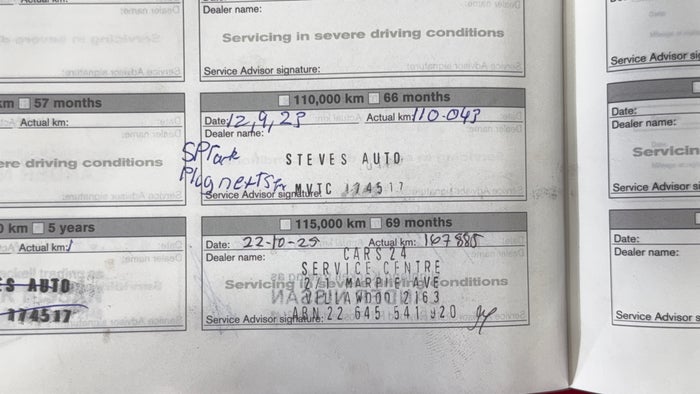 Dealer name:
Servicing in severe driving conditions
Service Advisor signature:
Service Advisor sig
km 57 months
Actual km:
ere driving conditions
110,000 km 66 months
Date: 12,9,23 Actual km: 110-043
Dealer name:
SPark
Plug next
STEVES AUTO
MVTC 174517
Service Advisor signature:
Date:
Dealer name:
Servicin
Service Advisor s
0 km 5 years
Actual km:
ES AUTO
174517
115,000 km 69 months
Date: 22-10-25 Actual km: 167885
Dealer name:
CARS24
SERVICE CENTRE
Servicing in severe driving conditions
AVE
2163
ABN 22 645 541 920
Service Advisor signature:
Date:
Dealer name:
Service Advisor s